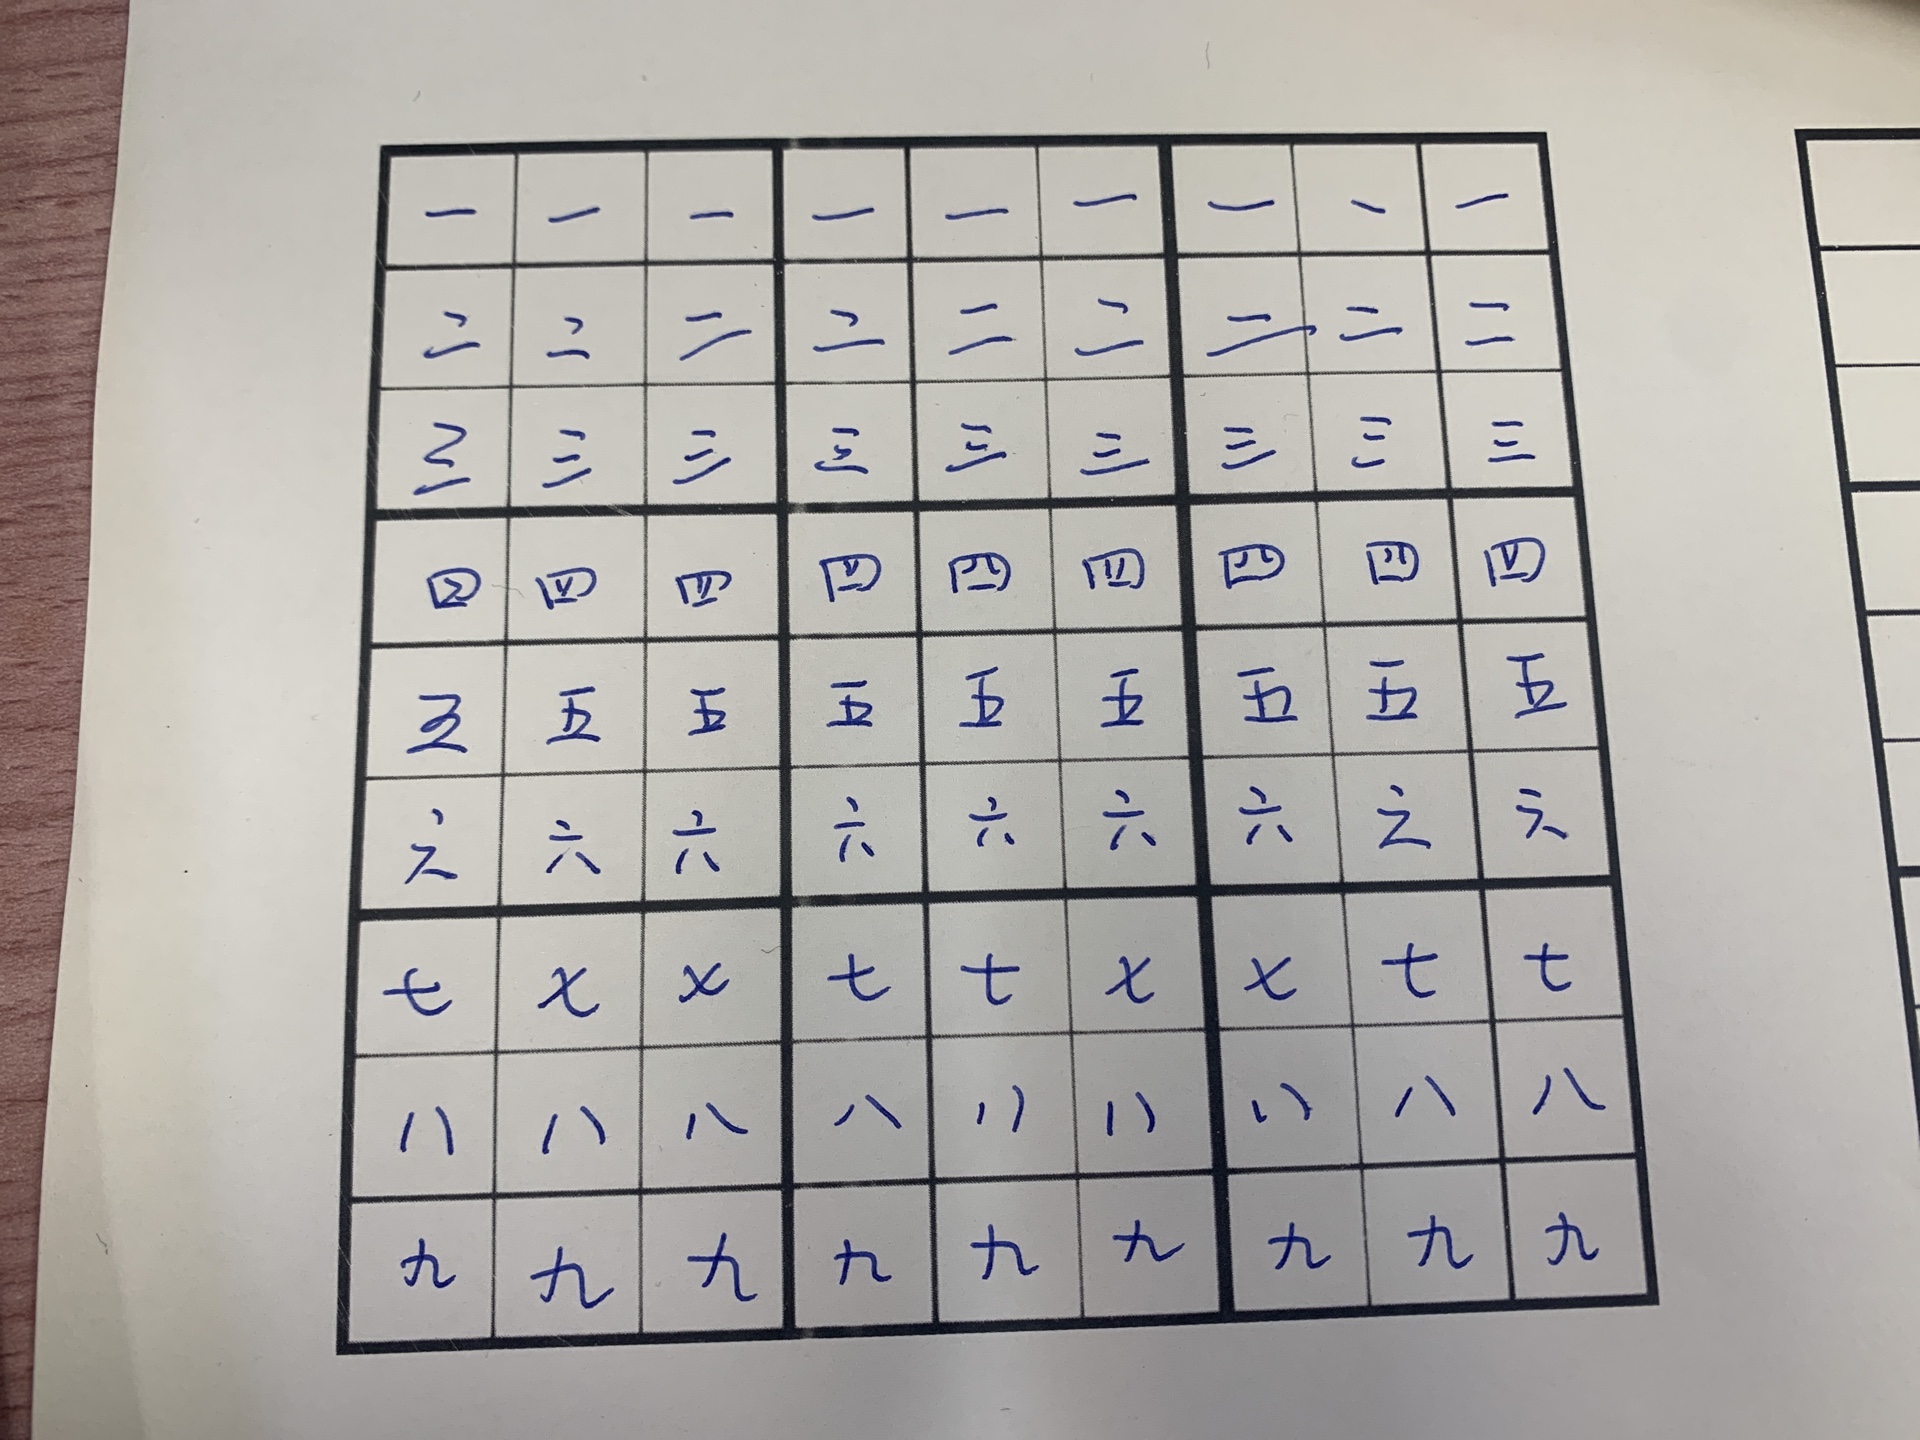 一 一 一 一 一 一 一 一 一
二 二 二 二 二 二 二 二 二
三 三 三 三 三 三 三 三 三
四 四 四 四 四 四 四 四 四
五 五 五 五 五 五 五 五 五
六 六 六 六 六 六 六 六 六
七 七 七 七 七 七 七 七 七
八 八 八 八 八 八 八 八 八
九 九 九 九 九 九 九 九 九